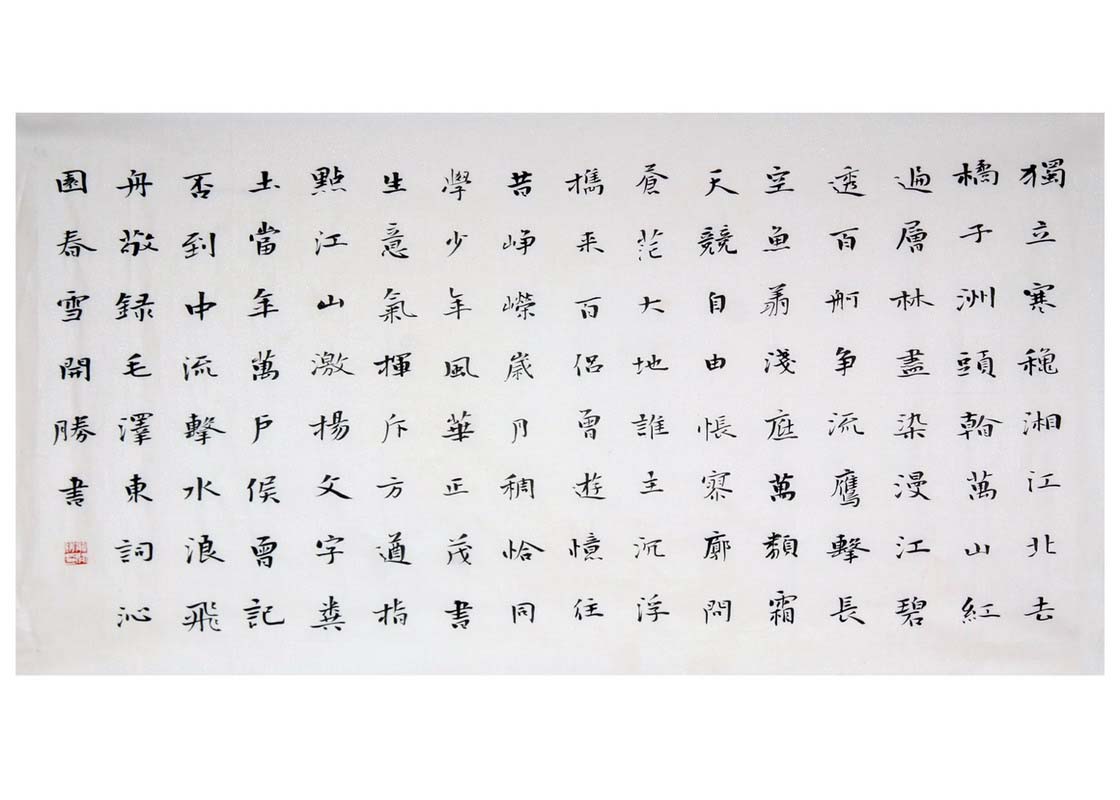 獨立寒穐湘江北去
橘子洲頭翰萬山紅
遍層林盡染漫江碧
透百舸争流鷹擊長
空魚翔淺底萬類霜
天競自由悵寥廓問
蒼茫大地誰主沉浮
㩗来百侣曾遊憶往
昔崢嶸歲月稠恰同
學少年風華正茂書
生意氣揮斥方遒指
點江山激揚文字糞
土當年萬户侯曾記
否到中流擊水浪飛
舟敬録毛澤東詞沁
園春雪開勝書